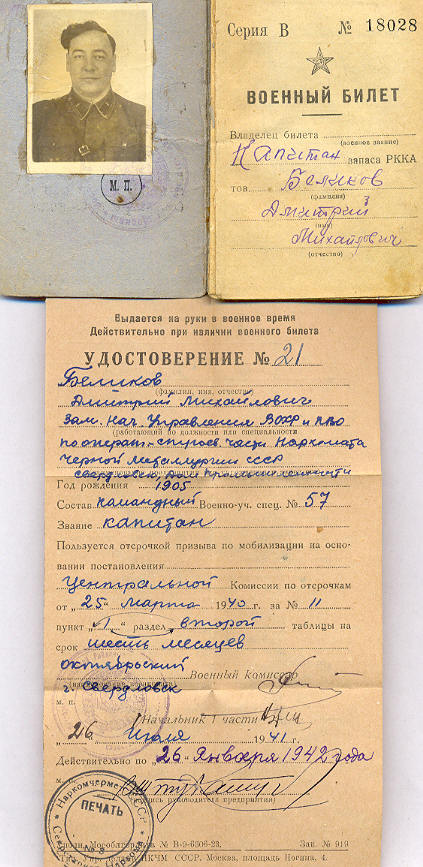 Серия В № 18028
ВОЕННЫЙ БИЛЕТ
Владелец билета
(военное звание)
Капитан запаса РККА
тов. Беликов
(фамилия)
Дмитрий
(имя)
Михайлович
(отчество)
М. П.
Выдается на руки в военное время
Действительно при наличии военного билета
УДОСТОВЕРЕНИЕ № 21
Беликов
(фамилия, имя, отчество)
Дмитрий Михайлович
зам. нач. Управления ВОХР и ПВО
(работающий по должности или специальности
по операт.-строев. части Наркомата
Черной Металлургии СССР
Свердловск, дом промышленности
Год рождения 1905
Состав командный Военно-уч. спец. № 57
Звание капитан
Пользуется отсрочкой призыва по мобилизации на осно-
вании постановления
Центральной Комиссии по отсрочкам
от „25“ марта 1940 г. за № 11
пункт „1“ раздел второй таблицы на
срок шесть месяцев
Октябрьский Военный комиссар
г. Свердловск
м. п.
Начальник 1 части
„26“ Июля 1941 г.
Действительно по „26“ Января 1942 года
м. п.
(подпись руководителя предприятия)
Наркомчермет
ПЕЧАТЬ
№ В-9-6506-23. Зак. № 919
НКЧМ СССР. Москва, площадь Ногина, 4.